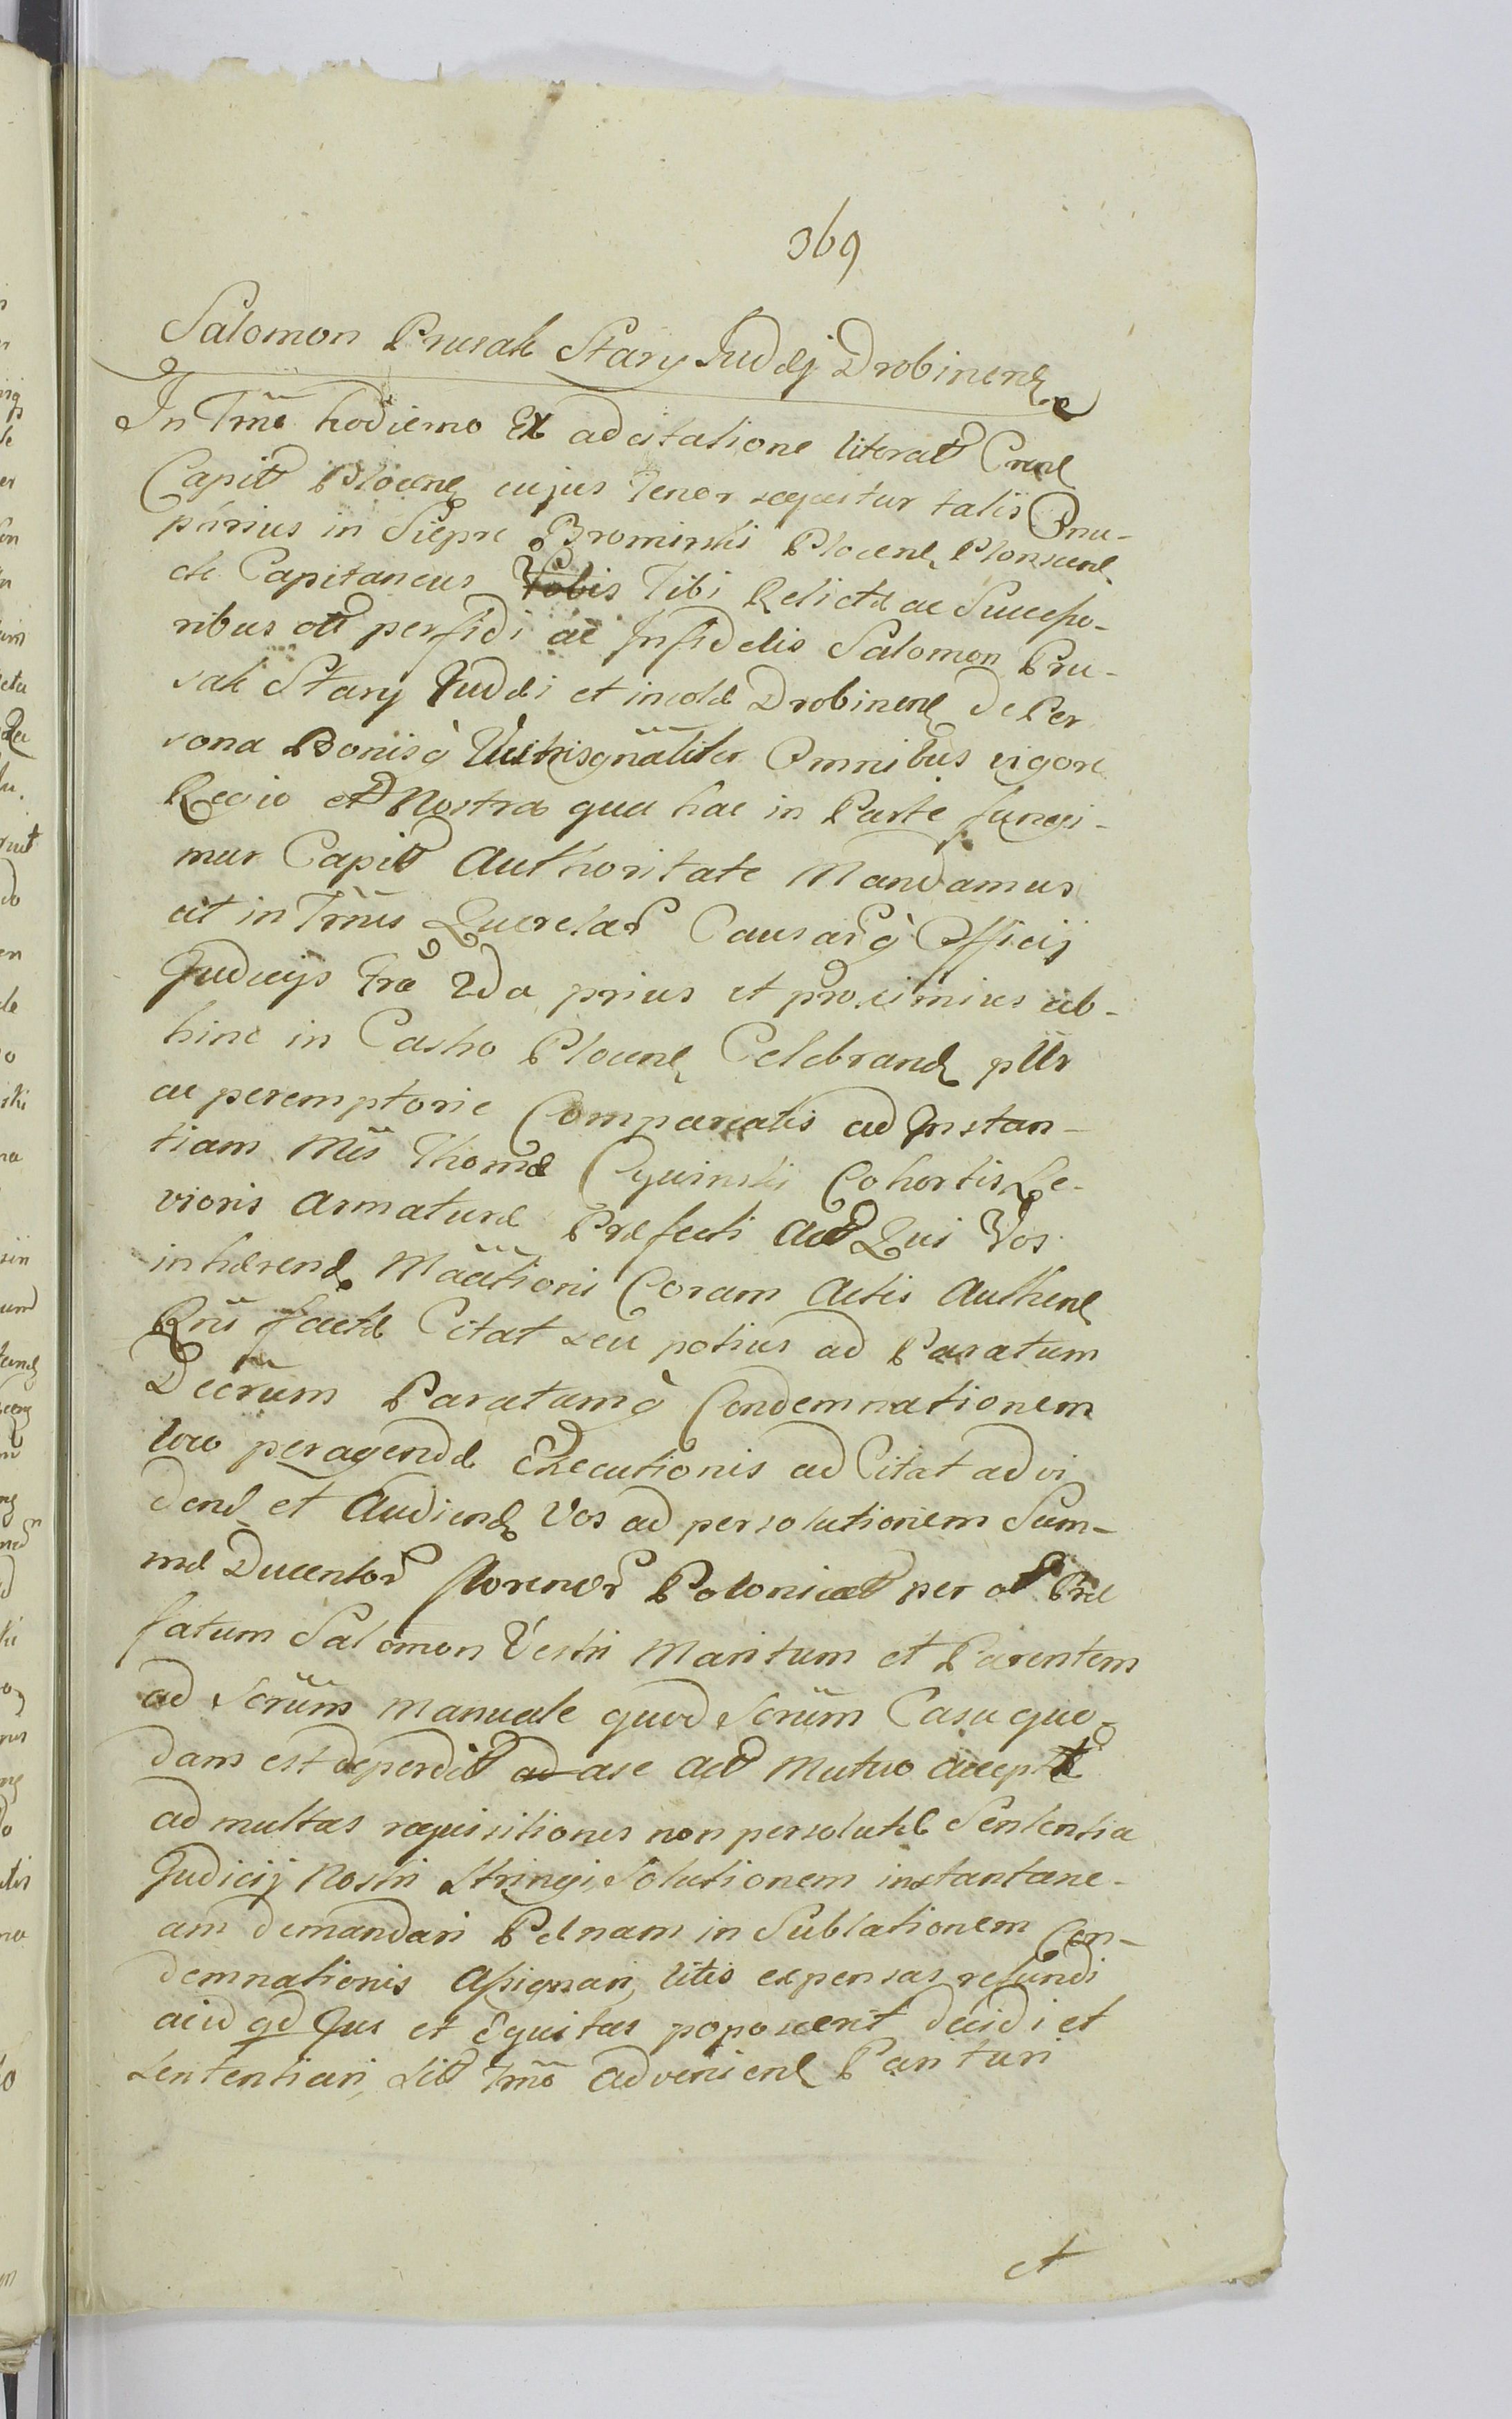 369
Salomon Prusak Stary Judæj Drobinen
In Trno hodierno Ex adcitatione literat Cren
Capit Plocen cujus tenor sequitur talis Onu-
phrius in Siepre Bromirski Plocen Plonscen
ck Capitaneus Vobis Tibi Relictæ ac Succeßo-
ribus ott perfidi ac Infidelis Salomon Pru-
sak Stary Judæi et incolæ Drobinen de Per
sona Bonisq Vestrisgnaliter Omnibus vigore
Regio et Nostra qua hac in Parte fungi-
mur Capit Authoritate Mandamus
ut in Trnis Querelar Causarq Officij
Judicijs Fra 2da prius et proximius ab-
hinc in Castro Plocen Celebrand pllr
ac peremptorie Compareatis ad Instan-
tiam Mci Thomæ Cywinski Cohortis Le-
vioris Armaturæ Præfecti Act Qui Vos
inhærend Maationi Coram Actis Authen
Rni factæ Citat seu potius ad Paratum
Decrum Paratamq Condemnationem
loco peragendæ Executionis ad Citat ad vi
dend et Audiend Vos ad persolutionem Sum-
mæ Ducentor florenor Polonical per ott Præ
fatum Salomon Vestri Maritum et Parentem
ad Scrum Manuale quod Scrum Casu quo-
dam est deperdit ad ase Act Mutuo Accept
ad multas requisitiones non persolutæ Sententia
Judicij Nostri Stringi, Solutionem instantane-
am demandari Pænam in Sublationem Con-
demnationis Aßignari, litis expensas refundi
aiud qd Jus et Equitas poposcerit decidi et
Sententiari, Sit Trno Advenien Parituri
et